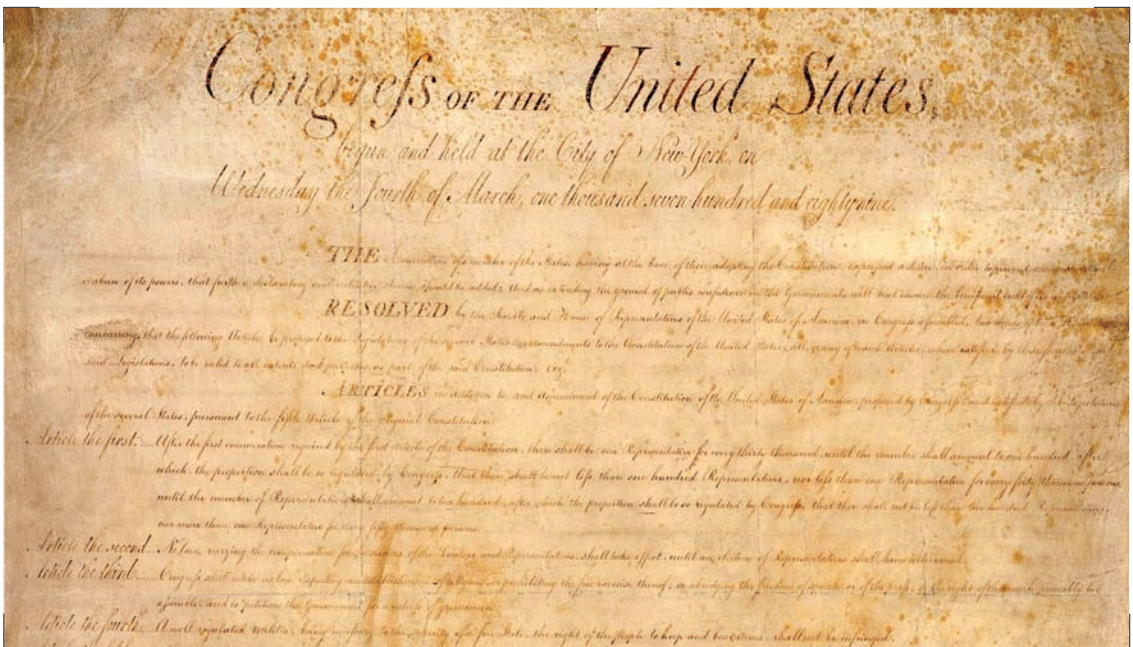 Congreſs OF THE United States,
begun and held at the City of New-York, on
Wednesday the fourth of March, one thousand seven hundred and eighty nine.
THE Conventions of a number of the States, having at the time of their adopting the Constitution, expreſsed a desire, in order to prevent
abuse of its powers, that further declaratory and restrictive clauses should be added: And as extending the ground of public confidence in the Government, will best ensure the beneficent ends of its
RESOLVED by the Senate and House of Representatives of the United States of America, in Congreſs aſsembled, two thirds of both Houses
concurring, that the following Articles be proposed to the Legislatures of the several States, as amendments to the Constitution of the United States, all, or any of which Articles, when ratified by three fourths of the
said Legislatures, to be valid to all intents and purposes, as part of the said Constitution; viz.
ARTICLES in addition to, and Amendment of the Constitution of the United States of America, proposed by Congreſs, and ratified by the Legislatures
of the several States, pursuant to the fifth Article of the original Constitution.
Article the first... After the first enumeration required by the first Article of the Constitution, there shall be one Representative for every thirty thousand, until the number shall amount to one hundred, after
which, the proportion shall be so regulated by Congreſs, that there shall be not leſs than one hundred Representatives, nor leſs than one Representative for every forty thousand persons,
until the number of Representatives shall amount to two hundred, after which the proportion shall be so regulated by Congreſs, that there shall not be leſs than two hundred Representatives,
nor more than one Representative for every fifty thousand persons.
Article the second... No law, varying the compensation for the services of the Senators and Representatives, shall take effect, until an election of Representatives shall have intervened.
Article the third... Congreſs shall make no law respecting an establishment of religion, or prohibiting the free exercise thereof; or abridging the freedom of speech, or of the preſs; or the right of the people peaceably to
aſsemble, and to petition the Government for a redreſs of grievances.
Article the fourth... A well regulated militia, being neceſsary to the security of a free State, the right of the people to keep and bear arms, shall not be infringed.